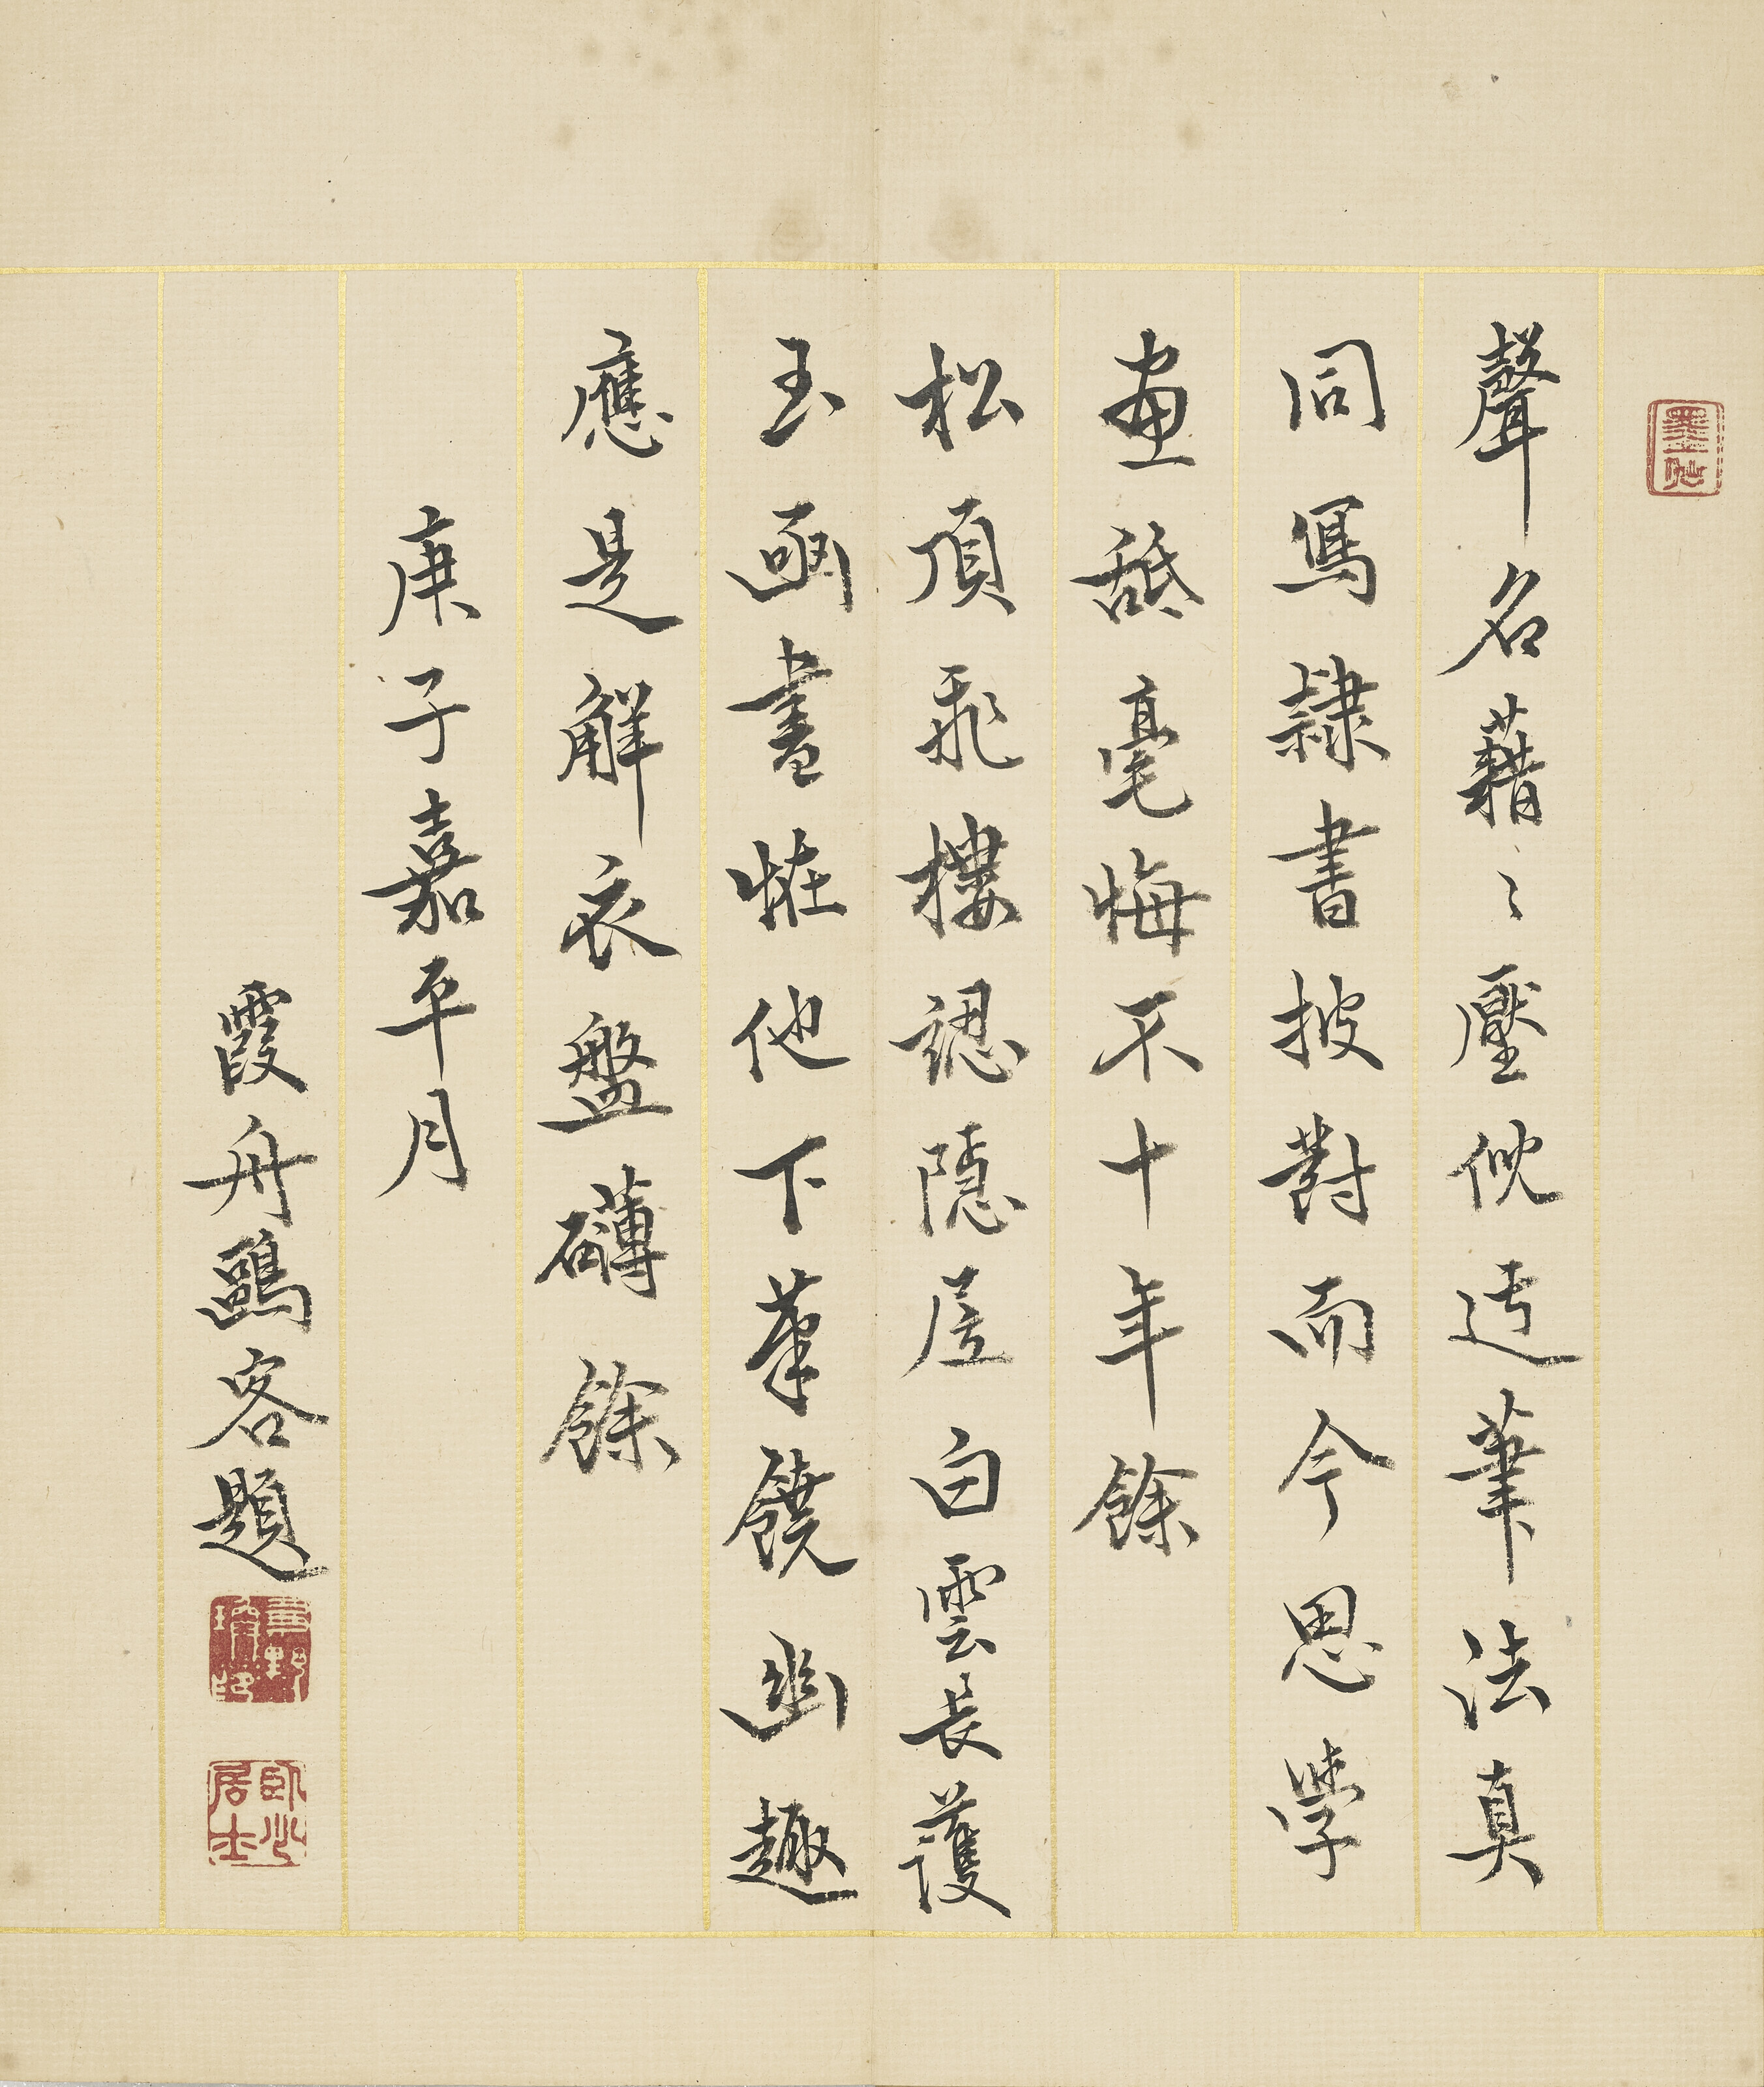 聲名藉〻壓倪迂筆法真
同寫隸書披對而今思學
畫舐毫悔不十年餘
松頂飛樓認隱居白雲長護
玉函書恠他下筆饒幽趣
應是解衣盤礴餘
庚子嘉平月
霞舟鷗客題